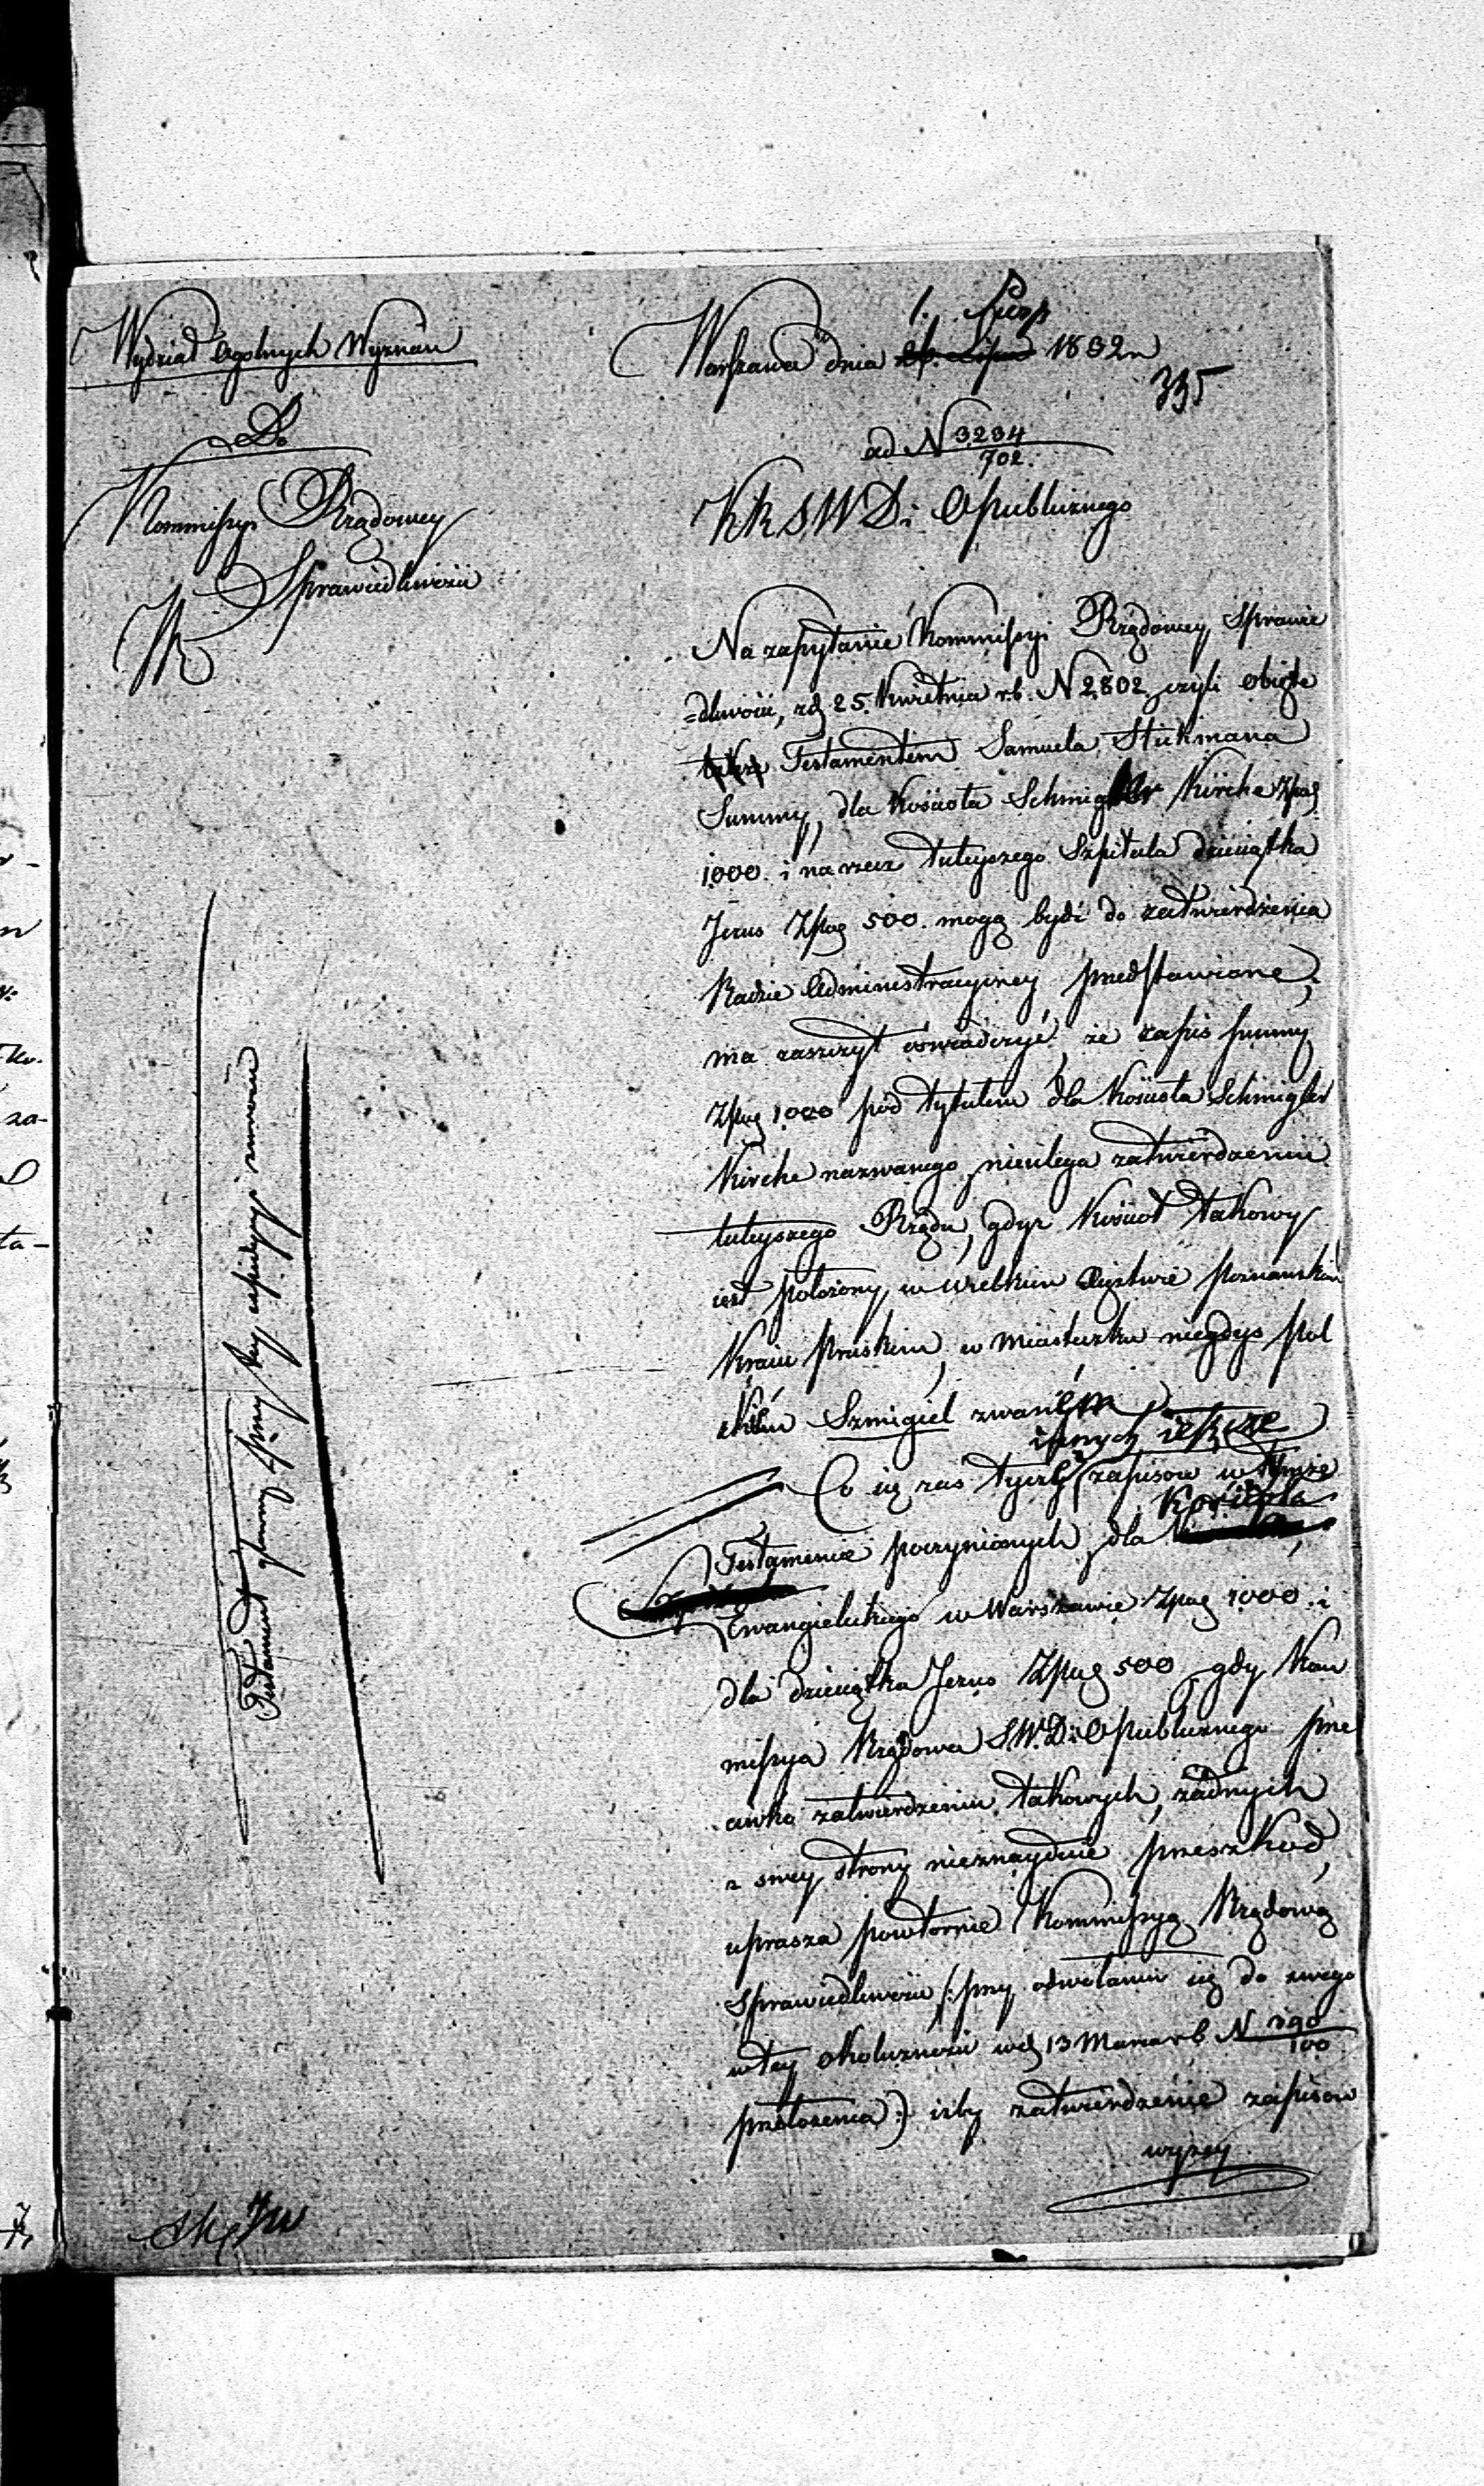 Wydział Ogolnych Wyznań
Do
Kommissyi Rządowey
Sprawiedliwości
Warszawa dnia 1. Sierp 1832
335
ad N 3234/702.
KRSWD i OPublicznego
Na zapytanie Kommissyi Rządowey Sprawie
=dliwości, z d. 25. Kwietnia r.b. N 2802 czyli obięte
Testamentem Samuela Stickmana
Summy, dla Kościoła Schmigler Kirche Zpol
1000. i na rzecz tuteyszego Szpitala dzieciątka
Jezus Zpol 500. mogą bydź do zatwierdzenia
Radzie Administracyiney przedstawione,
ma zaszczyt oswiadczyć, że zapis summy
Zpol 1000 pod tytułem dla Kościoła Schmigler
Kirche nazwanego, nieulega zatwierdzeniu
tuteyszego Rządu, gdyż Kościoł takowy
iest położony w wielkim Xięstwie Poznańskim
Kraiu Pruskim, w miasteczku niegdyś Pol
skiem Szmigiel zwaném
innych ieszcze
Co się zaś tycze zapisow w tymże
Kościoła
Testamencie poczynionych, dla
Ewangielickiego w Warszawie Zpol 1000. i
dla dzieciątka Jezus Zpol 500 gdy Kom
missya Rządowa SW.D i OPublicznego prze
ciwko zatwierdzeniu takowych, żadnych
z swey strony nieznayduie przeszkod,
uprasza powtornie Kommissyą Rządową
Sprawiedliwości /: przy odwołaniu się do swego
w tey okoliczności w d 13 Marca r b N 390/100
przełożenia :/ iżby zatwierdzenie zapisow
wyżey
Testament główny